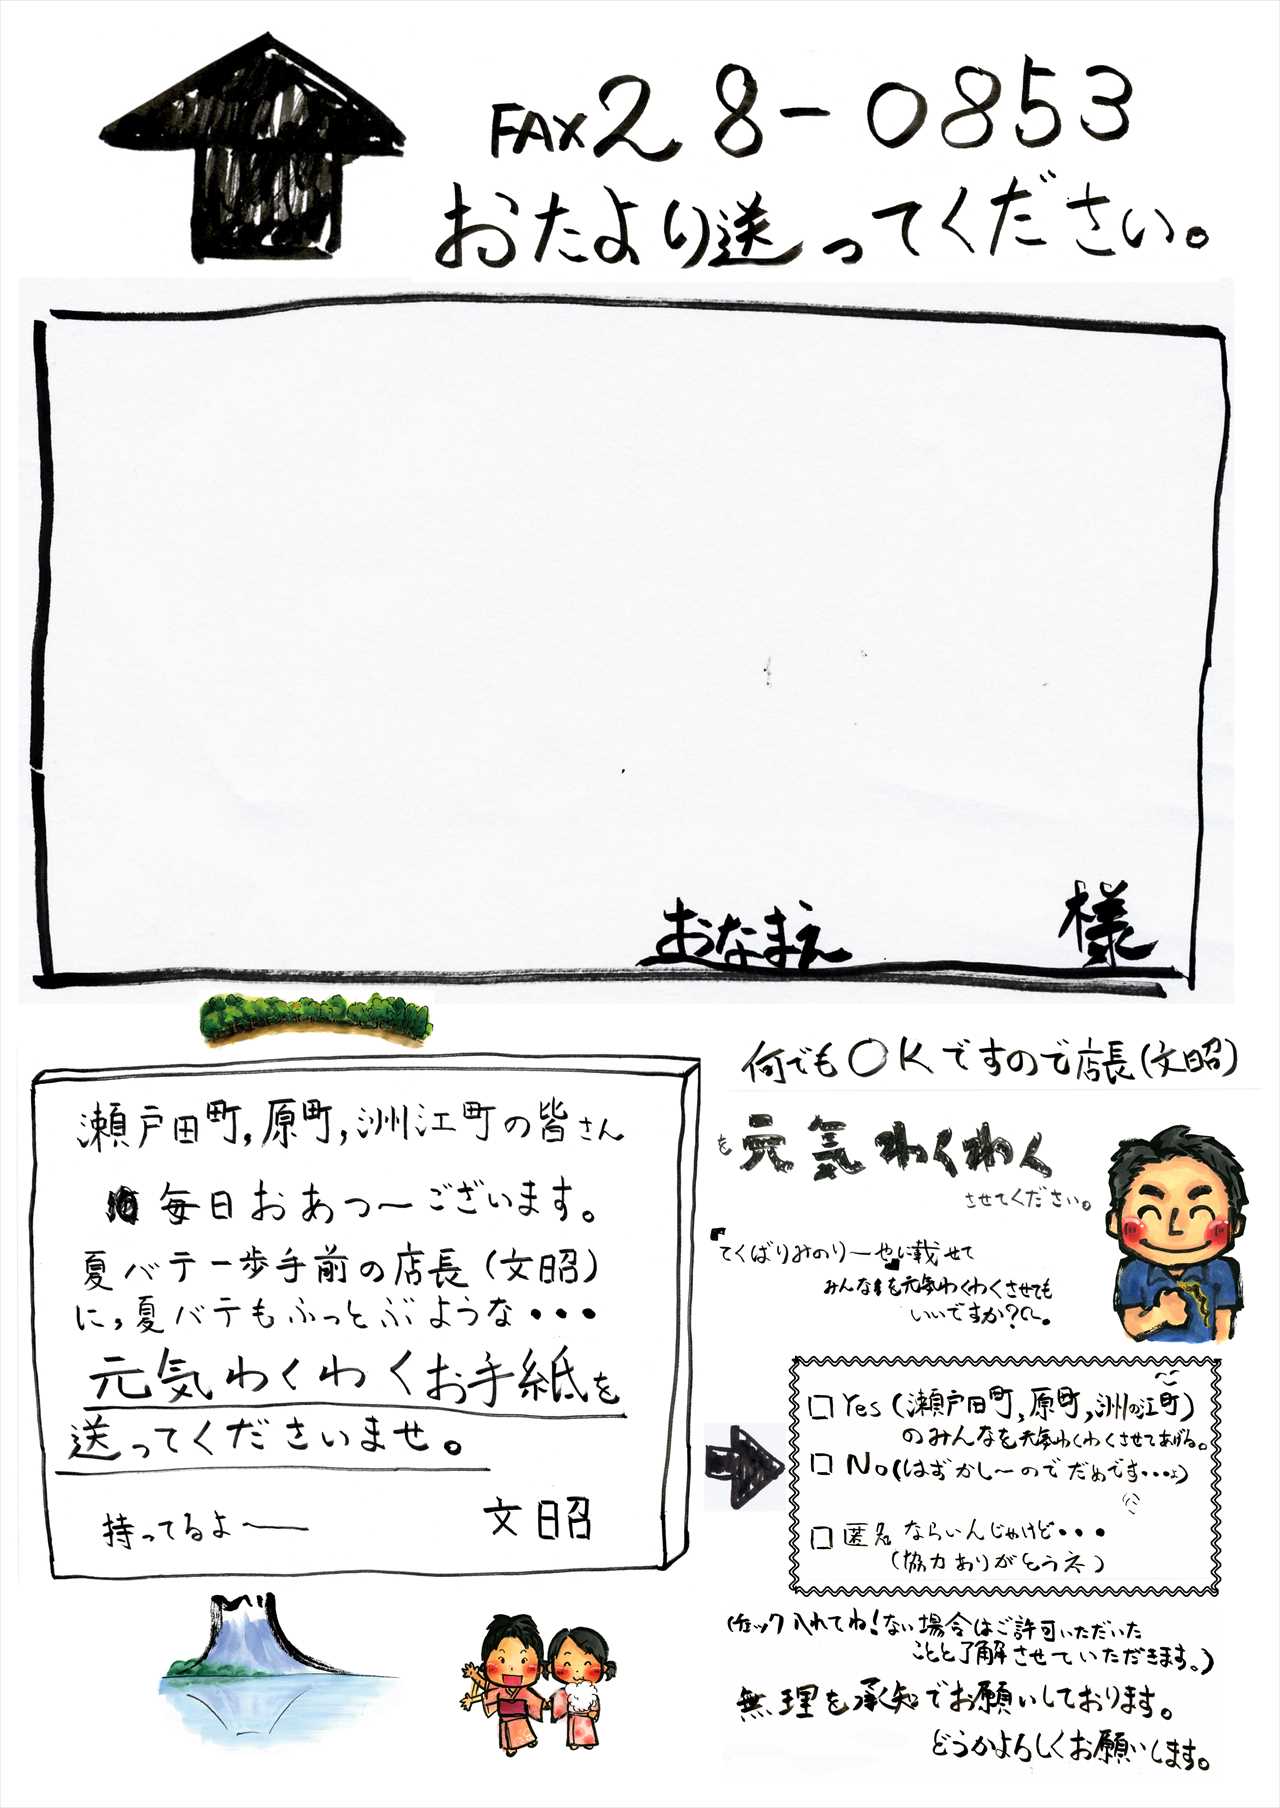 FAX28-0853
おたより送ってください。
おなまえ 様
何でもOKですので店長(文昭)
を元気わくわく
させてください。
「てくばりみのりーや」に載せて
みんなを元気わくわくさせても
いいですか?
瀬戸田町,原町,洲江町の皆さん
毎日おあつ〜ございます。
夏バテ一歩手前の店長(文昭)
に,夏バテもふっとぶような・・・
元気わくわくお手紙を
送ってくださいませ。
持ってるよ〜 文昭
□ Yes(瀬戸田町,原町,洲の江町)
のみんなを元気わくわくさせてあげる。
□ No(はずかし〜のでだめです・・・)
□ 匿名ならいんじゃけど・・・
(協力ありがとうネ)
(チェック入れてね!ない場合はご許可いただいた
ことと了解させていただきます。)
無理を承知でお願いしております。
どうかよろしくお願いします。